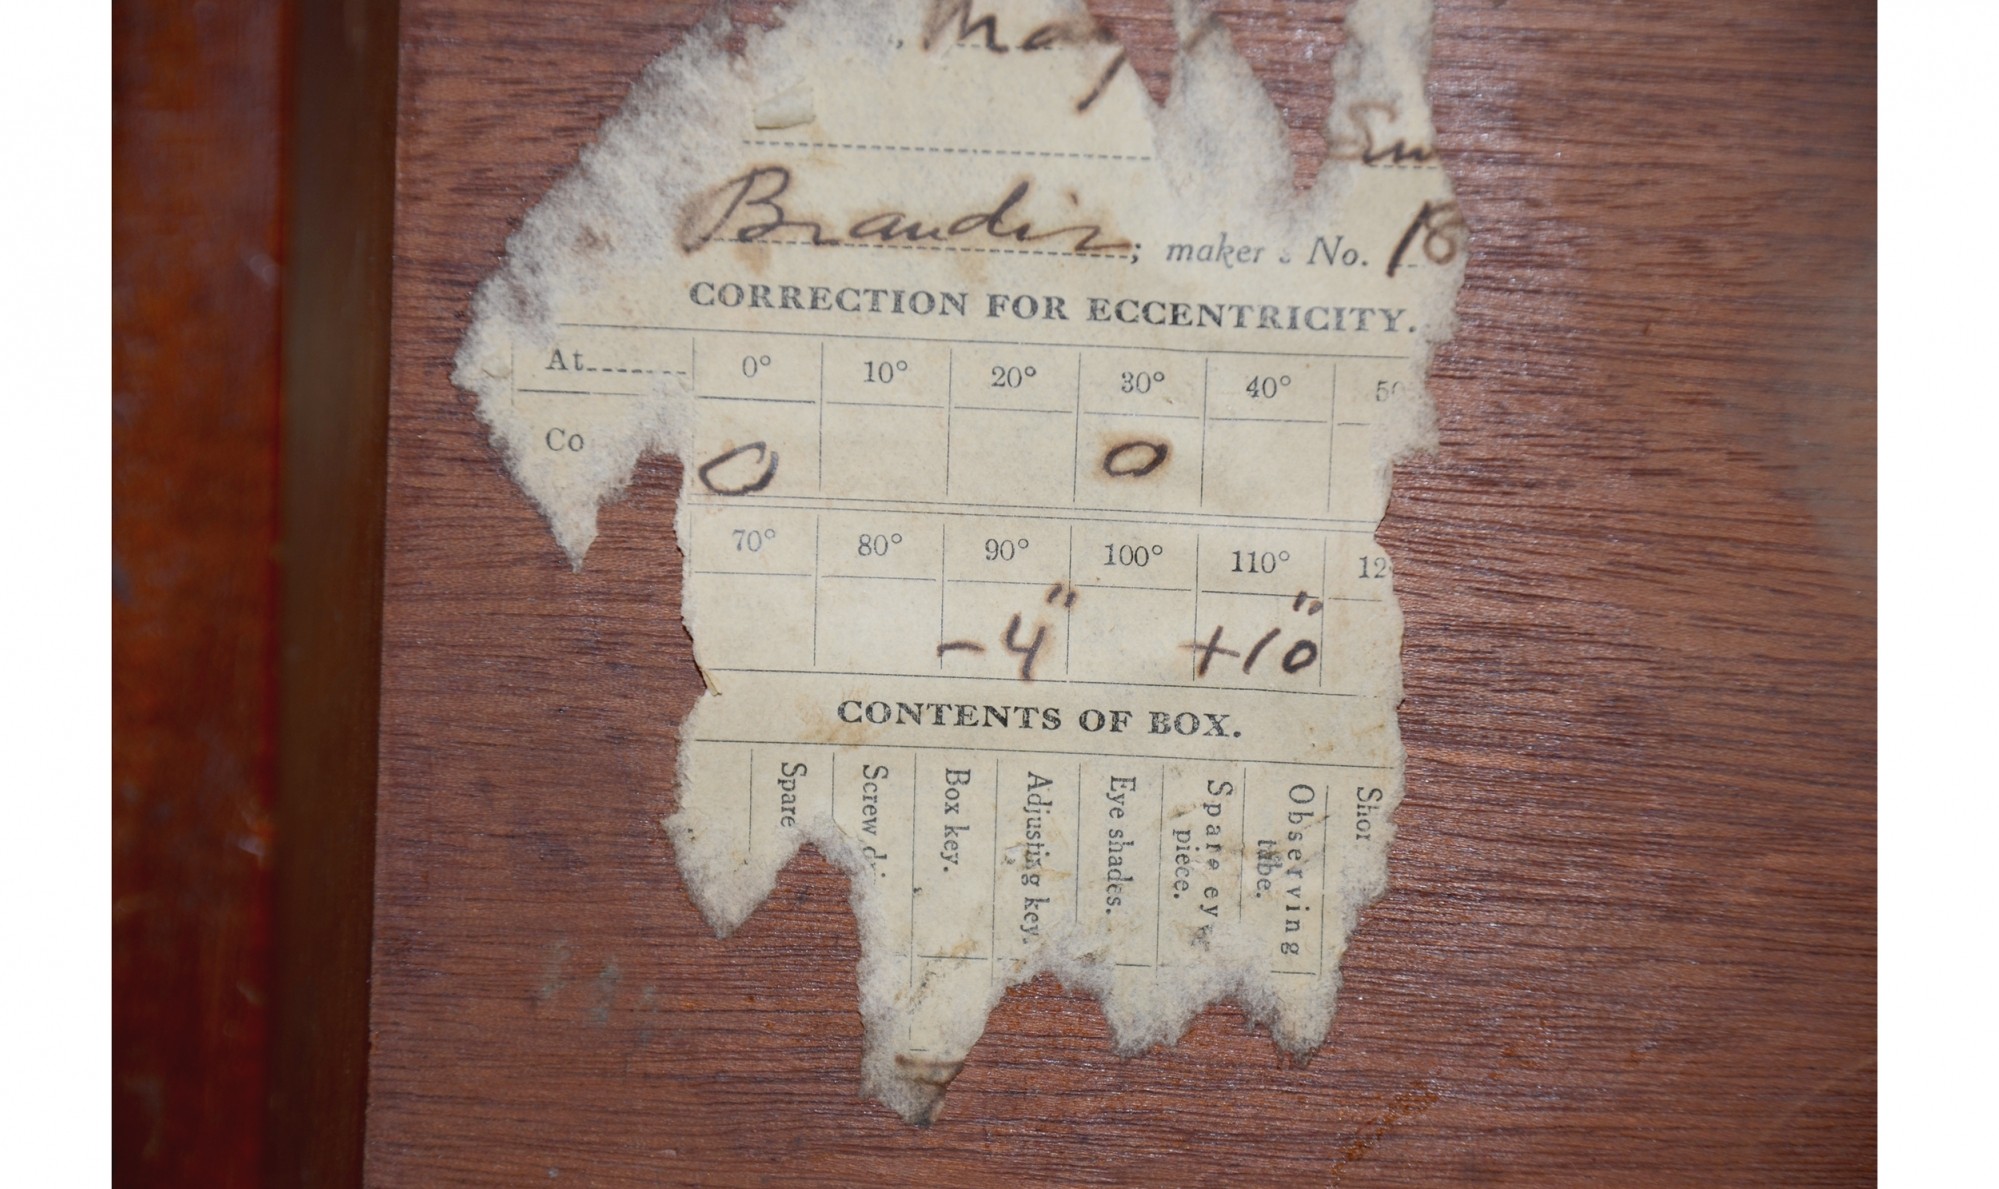 , May
Su
Brandis; maker's No. 18
CORRECTION FOR ECCENTRICITY.
At 0° 10° 20° 30° 40° 50
Co 0 0
70° 80° 90° 100° 110° 12
-4" +10"
CONTENTS OF BOX.
Spare
Screw d
Box key.
Adjusting key.
Eye shades.
Spare ey
piece.
Observing
tube.
Shor